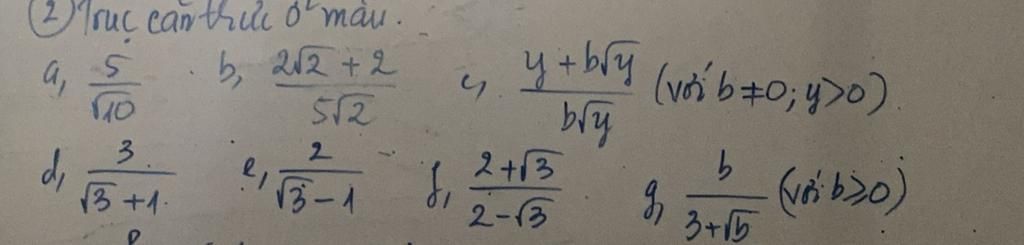 ② Trục căn thức ở mẫu.
a, 5/√10 b, (2√2 + 2)/(5√2) c, (y + b√y)/(b√y) (với b ≠ 0; y > 0).
d, 3/(√3 + 1) e, 2/(√3 - 1) f, (2 + √3)/(2 - √3) g, b/(3 + √b) (với b ≥ 0)